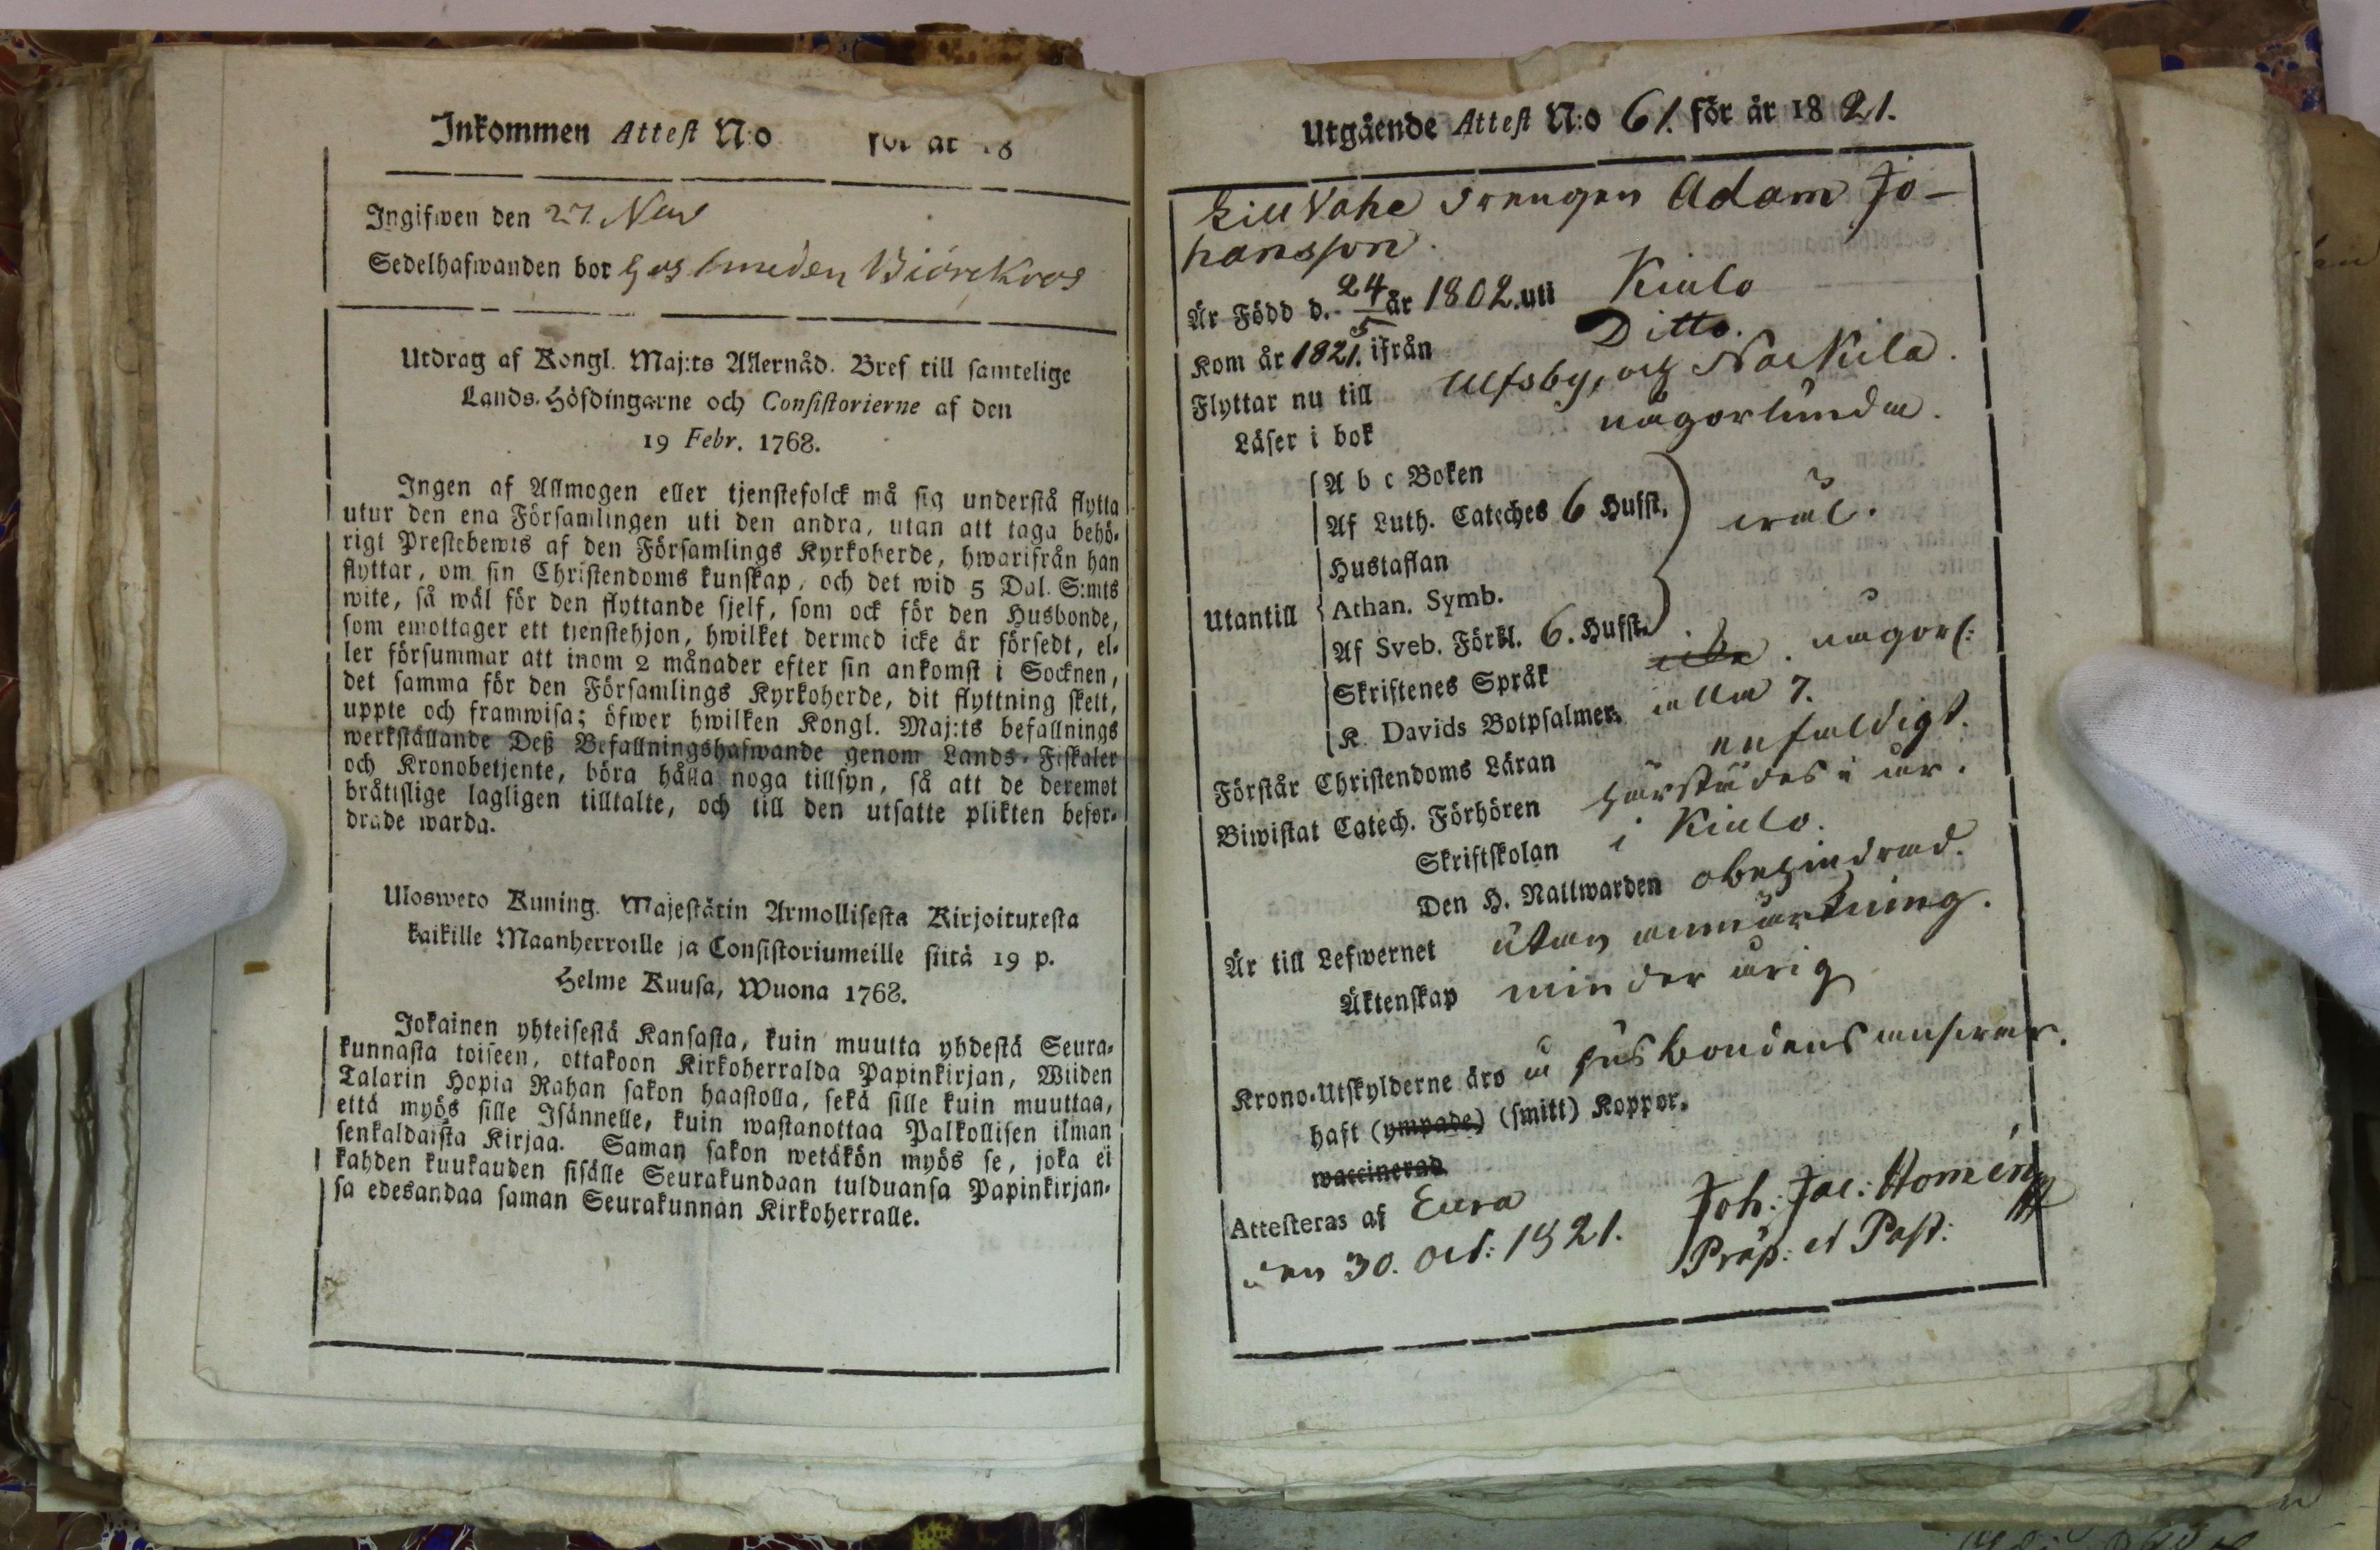 Inkommen Attest N:o för år 18
Ingifwen den 27. Nov
Sedelhafwanden bor hos smeden Biörckroos
Utdrag af Kongl. Maj:ts Allernåd. Bref till samtelige
Lands-Höfdingarne och Consistorierne af den
19 Febr. 1768.
Ingen af Allmogen eller tjenstefolck må sig understå flytta
utur den ena Församlingen uti den andra, utan att taga behö-
rigt Prestebewis af den Församlings Kyrkoherde, hwarifrån han
flyttar, om sin Christendoms kunskap, och det wid 5 Dal. S:mts
wite, så wäl för den flyttande sjelf, som ock för den Husbonde,
som emottager ett tjenstehjon, hwilket dermed icke är försedt, el-
ler försummar att inom 2 månader efter sin ankomst i Socknen,
det samma för den Församlings Kyrkoherde, dit flyttning skett,
uppte och framwisa; öfwer hwilken Kongl. Maj:ts befallnings
werkställande Deß Befallningshafwande genom Lands-Fiskaler
och Kronobetjente, böra hålla noga tillsyn, så att de deremot
brätislige lagligen tilltalte, och till den utsatte plikten befor-
drade warda.
Ulosweto Kuning. Majestätin Armollisesta Kirjoituxesta
kaikille Maanherroille ja Consistoriumeille siitä 19 p.
Helme Kuusa, Wuona 1768.
Jokainen yhteisestä Kansasta, kuin muutta yhdestä Seura-
kunnasta toiseen, ottakoon Kirkoherralda Papinkirjan, Wiiden
Talarin Hopia Rahan sakon haastolla, sekä sille kuin muuttaa,
että myös sille Isännelle, kuin wastanottaa Palkollisen ilman
senkaldaista Kirjaa. Saman sakon wetäkön myös se, joka ei
kahden kuukauden sisälle Seurakundaan tulduansa Papinkirjan-
sa edesandaa saman Seurakunnan Kirkoherralle.
Utgående Attest N:o 61. för år 1821.
Drengen Adam Jo-
hansson.
Är Född d. 24/5 år 1802. uti Kiulo
Kom år 1821. ifrån Ditto.
Flyttar nu till Ulfsby, och Nackila.
Läser i bok någorlunda.
A b c Boken
Af Luth. Cateches 6 Hufst. wäl.
Hustaflan
Utantill Athan. Symb.
Af Sveb. Förkl. 6. Hufst.
Skriftenes Språk icke. någorl:
K. Davids Botpsalmer, alla 7.
Förstår Christendoms Läran enfaldigt.
Biwistat Catech. Förhören härstädes i år.
Skriftskolan i Kiulo.
Den H. Nattwarden obehindrad.
Är till Lefwernet utan anmärkning.
Äktenskap minderårig
Krono-Utskylderne äro å husbondens answar.
haft (ympade) (smitt) Koppor.
waccinerad
Attesteras af Eura
den 30. Oct: 1821. Joh: Jac: Homén
Präp: et Past: